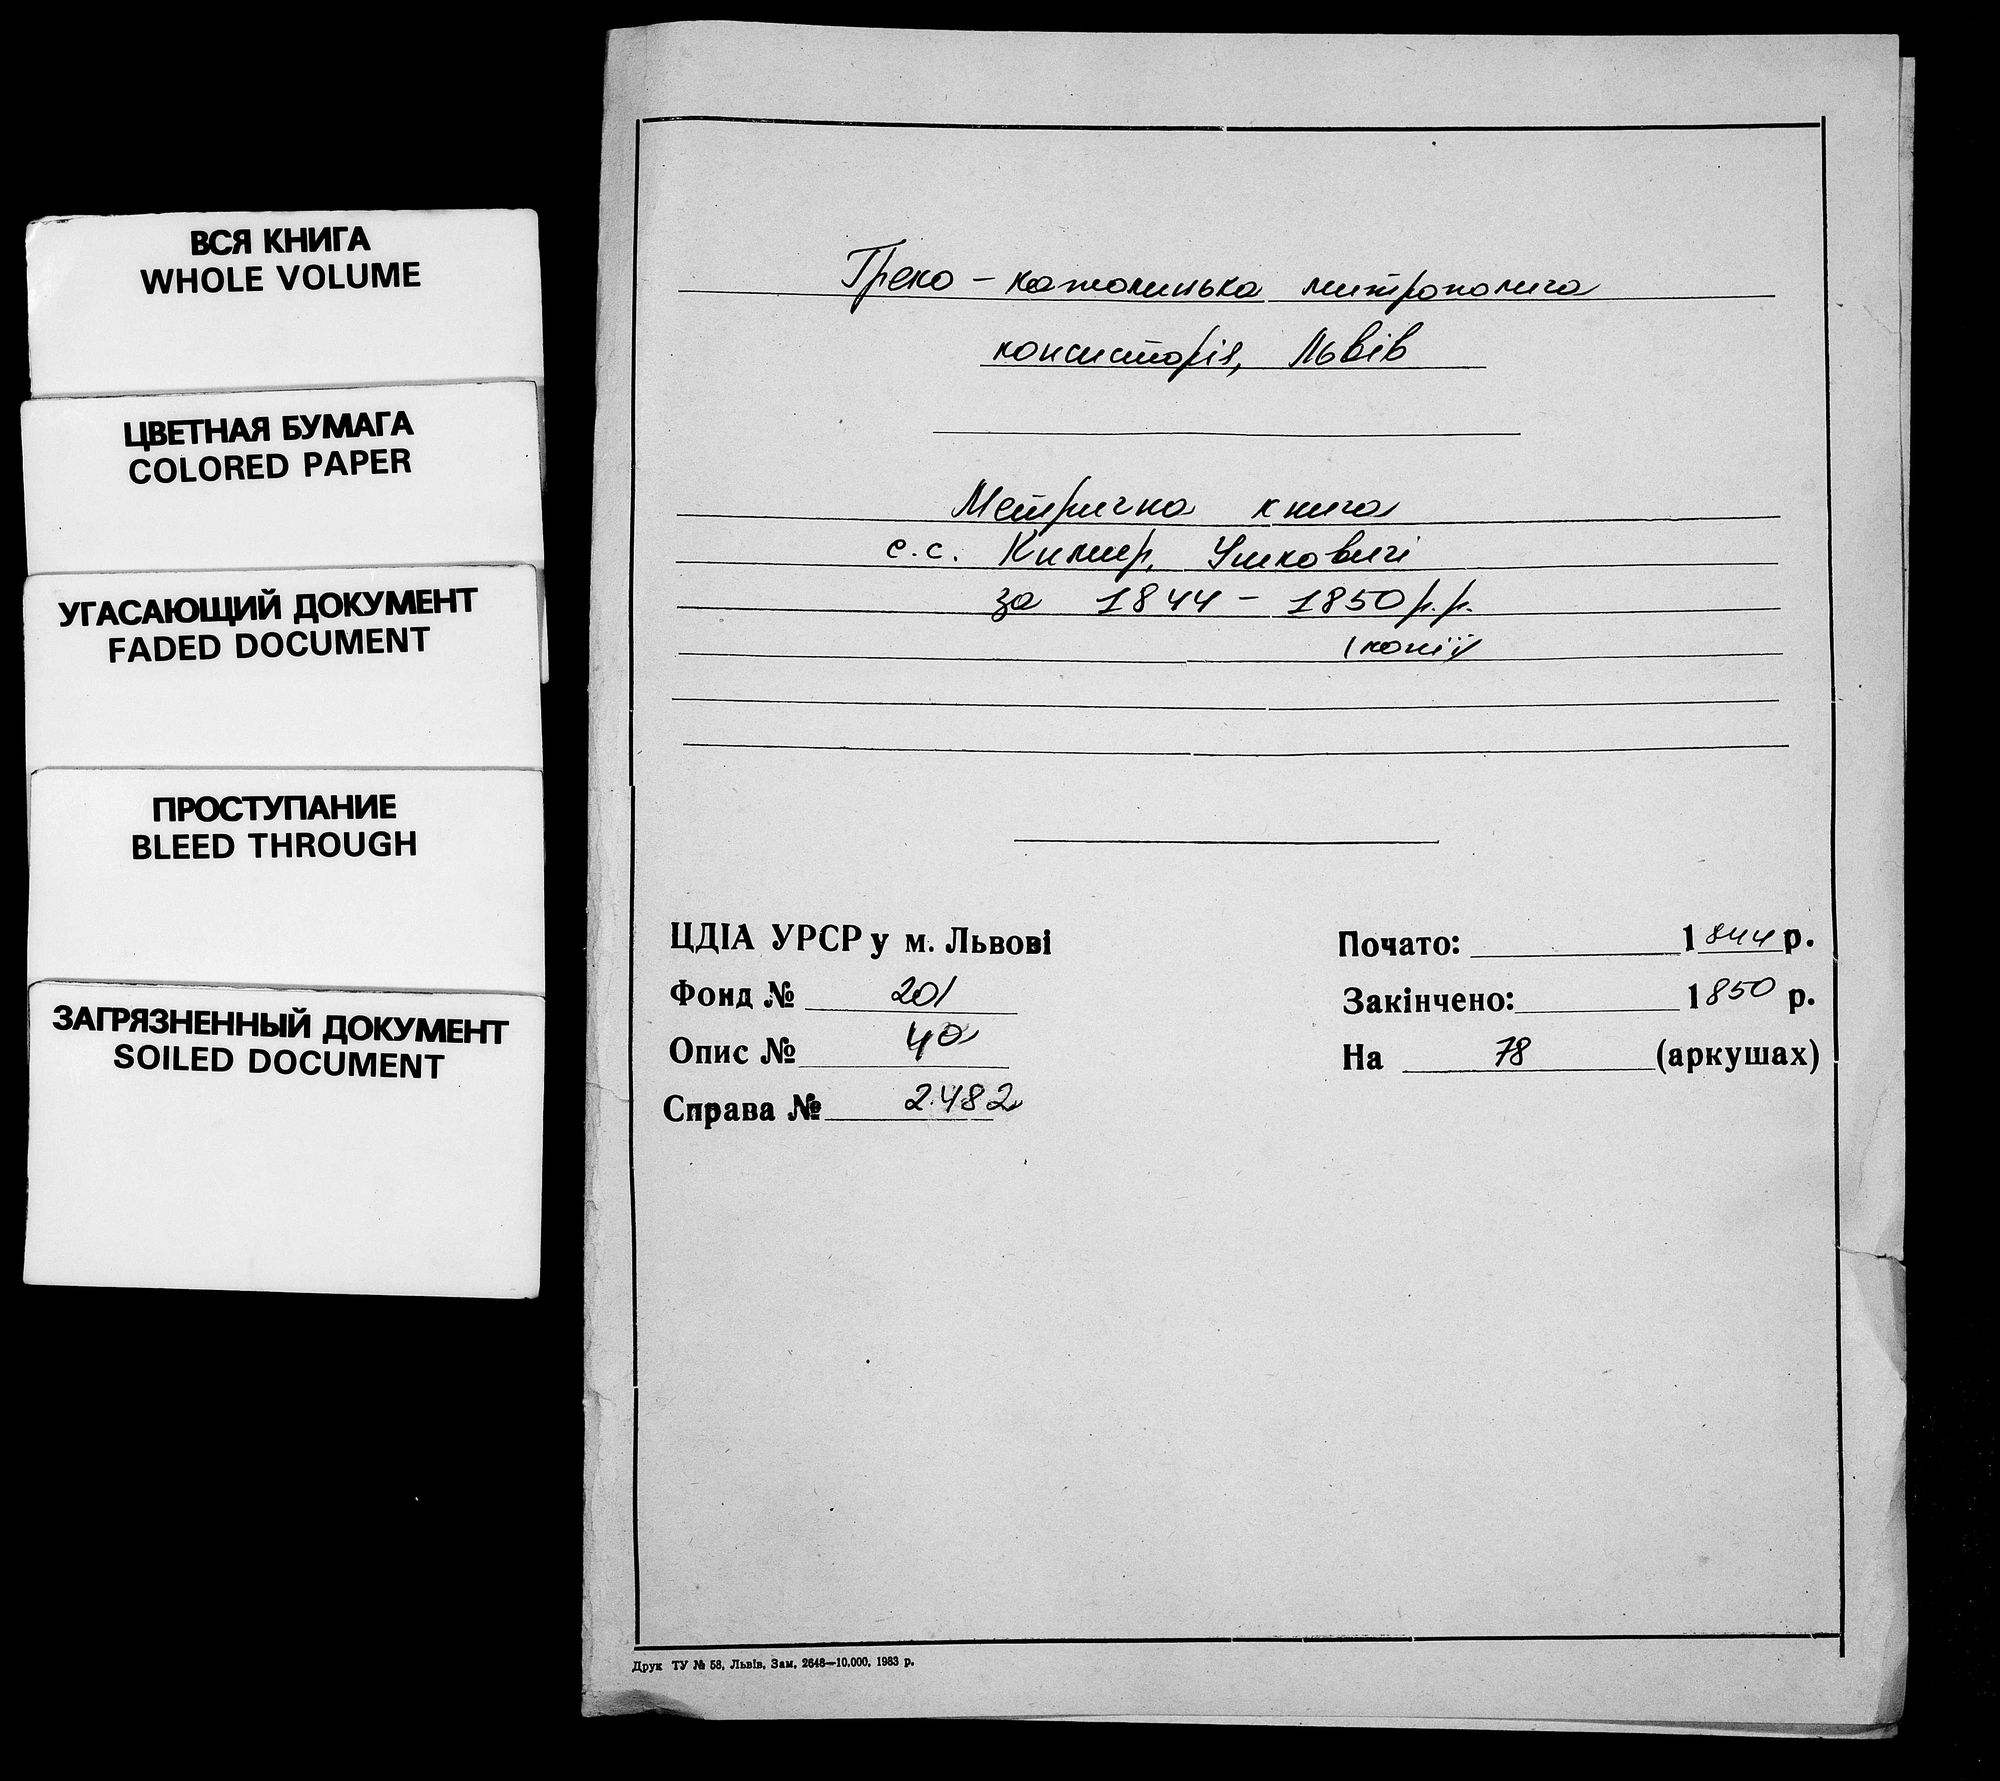 ВСЯ КНИГА
WHOLE VOLUME
ЦВЕТНАЯ БУМАГА
COLORED PAPER
УГАСАЮЩИЙ ДОКУМЕНТ
FADED DOCUMENT
ПРОСТУПАНИЕ
BLEED THROUGH
ЗАГРЯЗНЕННЫЙ ДОКУМЕНТ
SOILED DOCUMENT
Греко-католицька митрополича
консисторія, Львів
Метрична книга
с.с. Кимир, Ушковичі
за 1844 - 1850 р.р.
(копії)
ЦДІА УРСР у м. Львові
Фонд № 201
Опис № 4а
Справа № 2482
Почато: 1844 р.
Закінчено: 1850 р.
На 78 (аркушах)
Друк ТУ № 58, Львів, Зам. 2648—10.000. 1983 р.